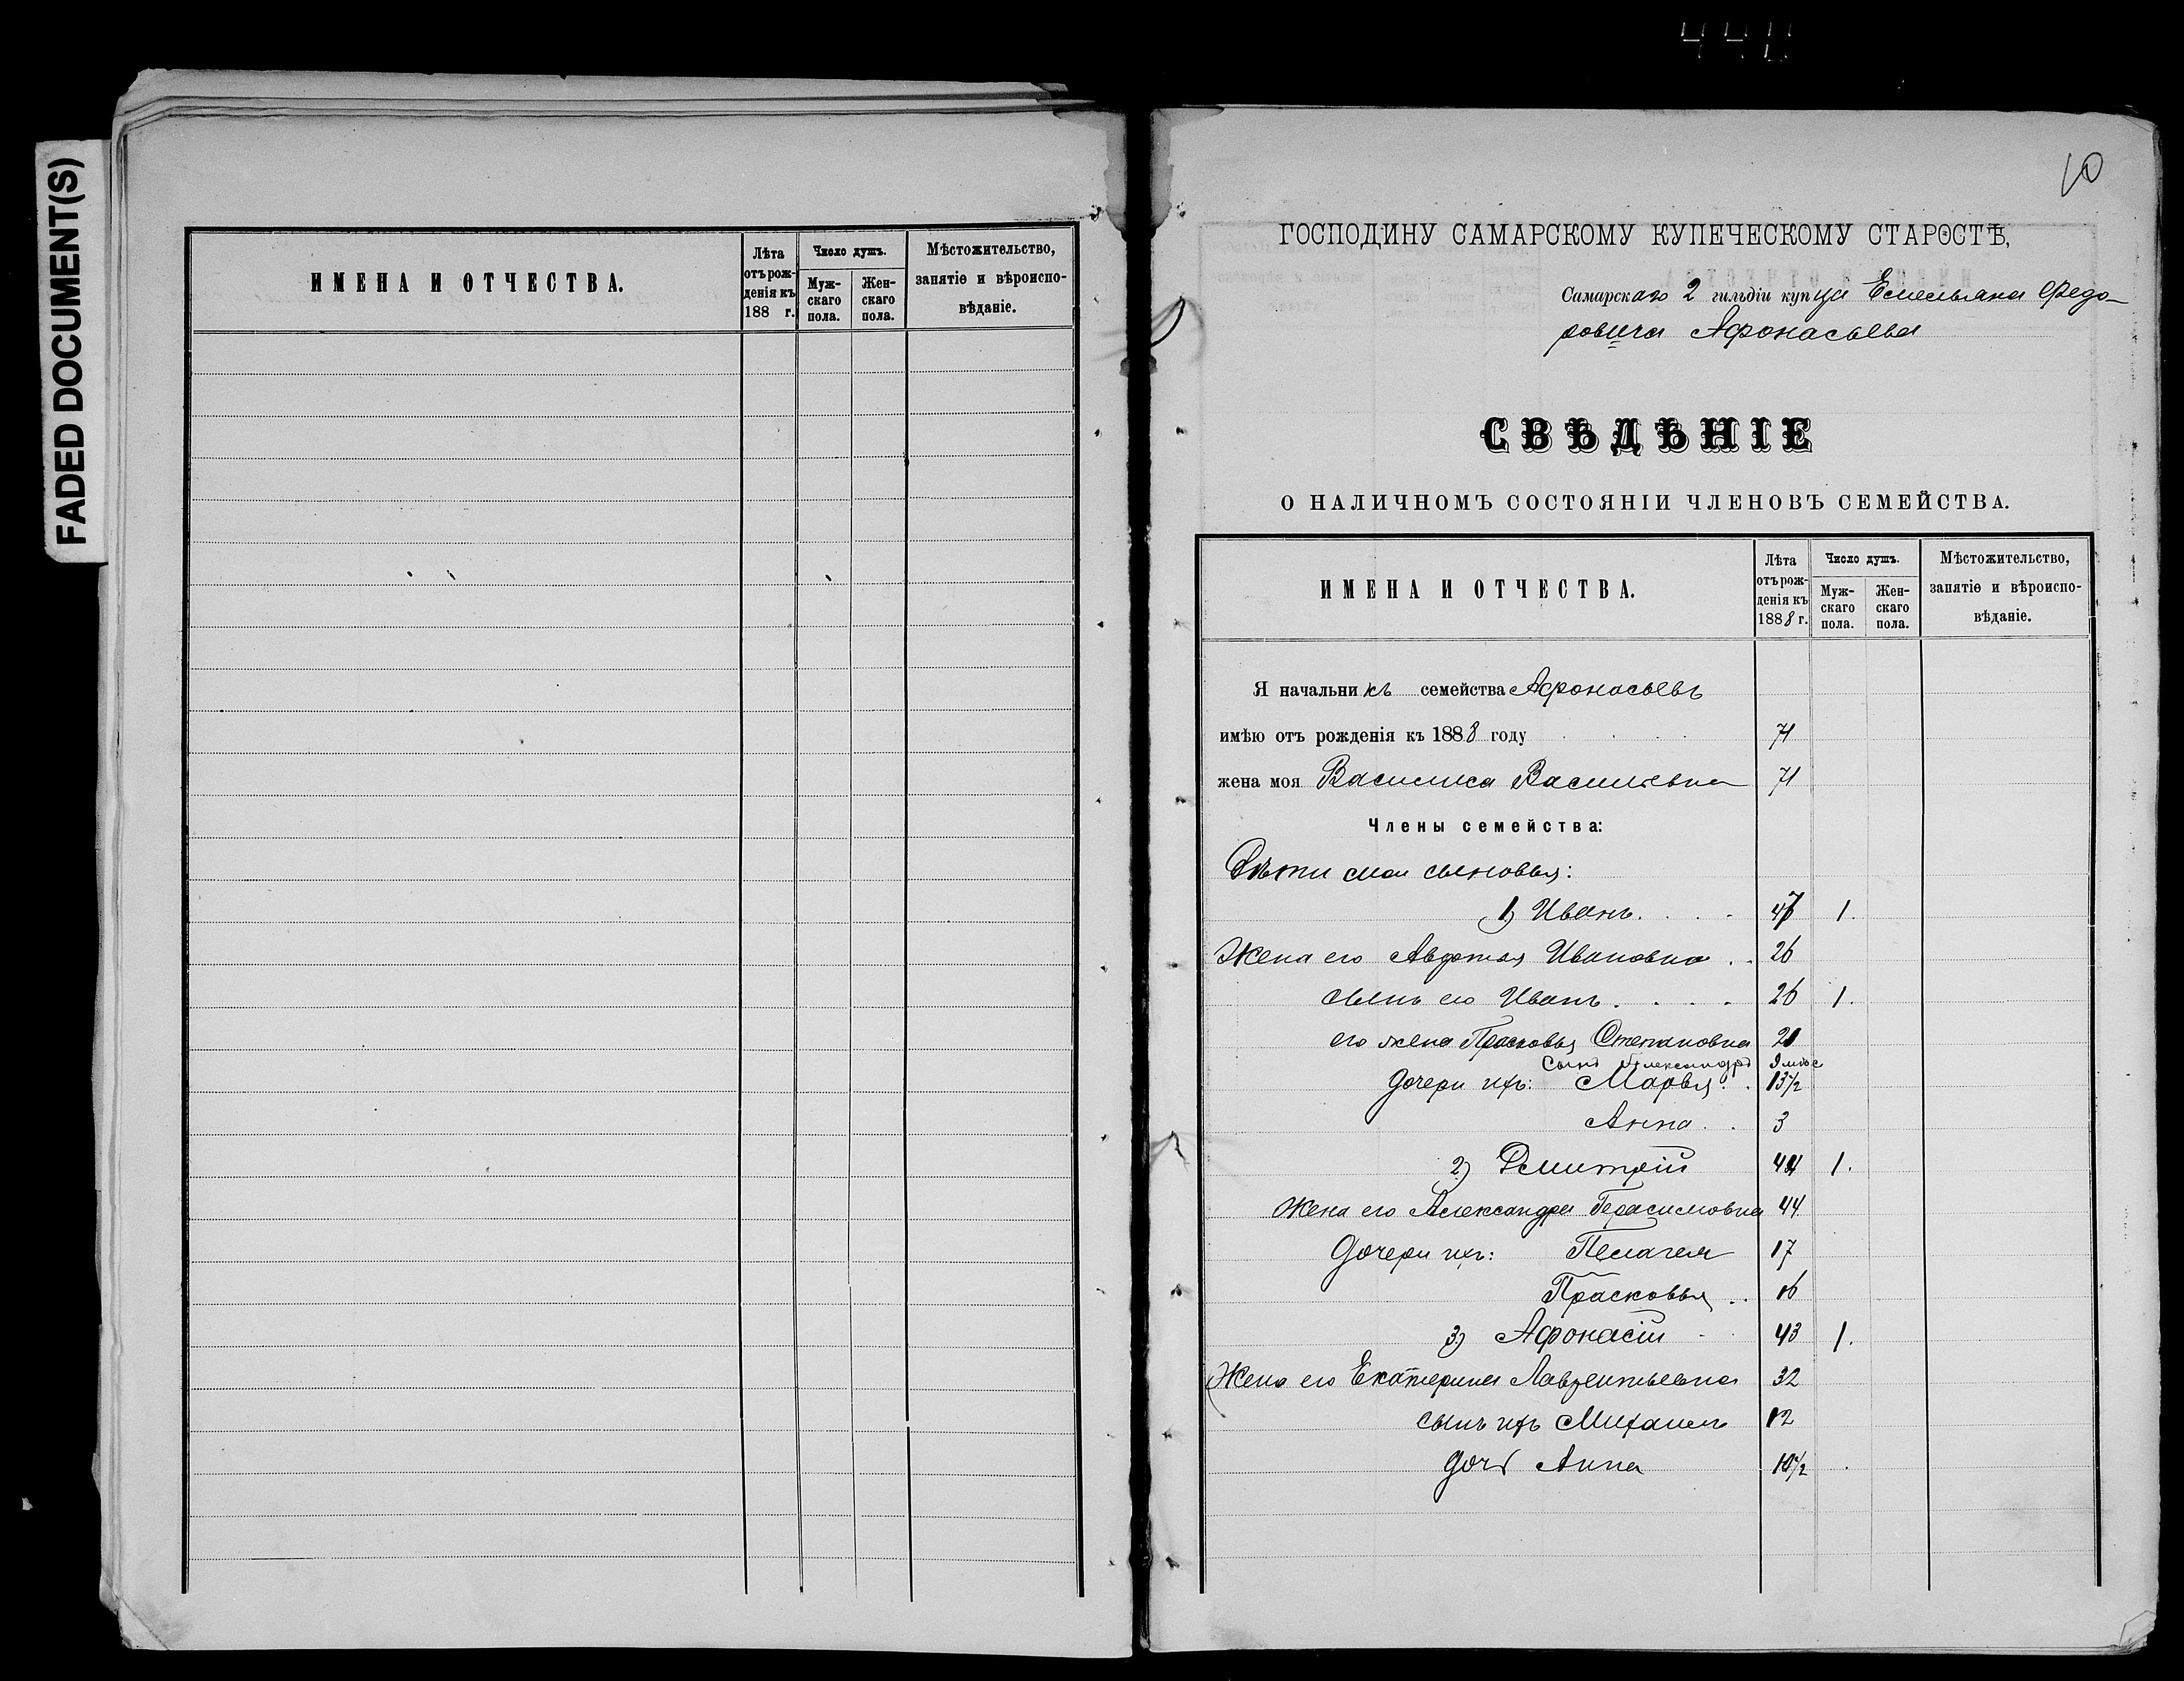 FADED DOCUMENT(S)
ИМЕНА И ОТЧЕСТВА.
Лѣта отъ рожденія къ 188 г.
Число душъ.
Мужскаго пола.
Женскаго пола.
Мѣстожительство, занятіе и вѣроисповѣданіе.
10
ГОСПОДИНУ САМАРСКОМУ КУПЕЧЕСКОМУ СТАРОСТѢ,
Самарскаго 2 гильдіи купца Емельяна Федо-
ровича Афонасьева
СВѢДѢНІЕ
О НАЛИЧНОМЪ СОСТОЯНІИ ЧЛЕНОВЪ СЕМЕЙСТВА.
ИМЕНА И ОТЧЕСТВА.
Лѣта отъ рожденія къ 1888 г.
Число душъ.
Мужскаго пола.
Женскаго пола.
Мѣстожительство, занятіе и вѣроисповѣданіе.
Я начальникъ семейства Афонасьевъ
имѣю отъ рожденія къ 1888 году 71
жена моя Василиса Васильевна 71
Члены семейства:
Дѣти мои сыновья:
1) Иванъ. 47 1.
Жена его Авдотья Ивановна 26
сынъ его Иванъ 26 1.
его жена Прасковья Степановна 20
Сынъ Александръ 9 мѣс
дочери ихъ: Марья 13½
Анна 3
2) Дмитрій 44 1.
Жена его Александра Герасимовна 44
Дочери ихъ: Пелагея 17
Прасковья 16
3) Афонасій 43 1.
Жена его Екатерина Лаврентьевна 32
сынъ ихъ Михаилъ 12
дочь Анна 10½